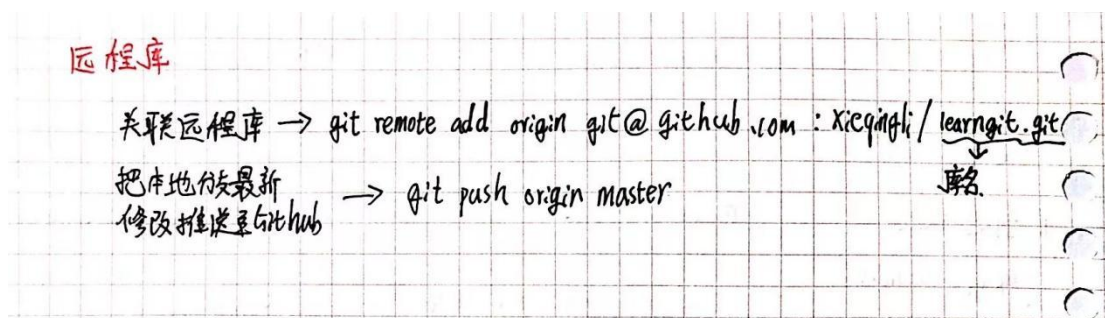 远程库
关联远程库 → git remote add origin git@github.com : xieqingli/learngit.git
库名
把本地分支最新
修改推送至GitHub → git push origin master